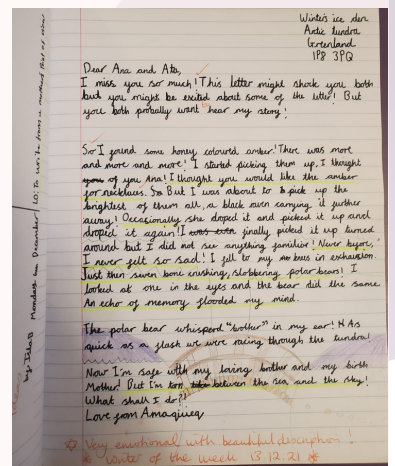 Winter's ice den
Artic tundra
Greenland
1P8 3PQ
Dear Ana and Ata,
I miss you so much! This letter might shock you both
but you might be excited about some of the letter! But
you both probally want to hear my story!
So I found some honey coloured amber! There was more
and more and more! I started picking them up, I thought
of you Ana! I thought you would like the amber
for necklaces. But I was about to pick up the
brightest of them all, a black raven carrying it further
away! Occasionally she droped it and picked it up and
droped it again! I finally picked it up turned
around but I did not see anything familiar! Never before,
I never felt so sad! I fell to my knees in exhaustion.
Just then seven bone crushing, slobbering polar bears! I
looked at one in the eyes and the bear did the same
An echo of memory flooded my mind.
The polar bear whisperd "brother" in my ear! As
quick as a flash we were racing through the tundra!
Now I'm safe with my loving brother and my birth
Mother! But I'm torn between the sea and the sky!
What shall I do?
Love from Amaqjuaq
Very emotional with beautiful description!
* Writer of the week 13.12.21 *
by: Isla B Monday December LO: To write from a method that of view